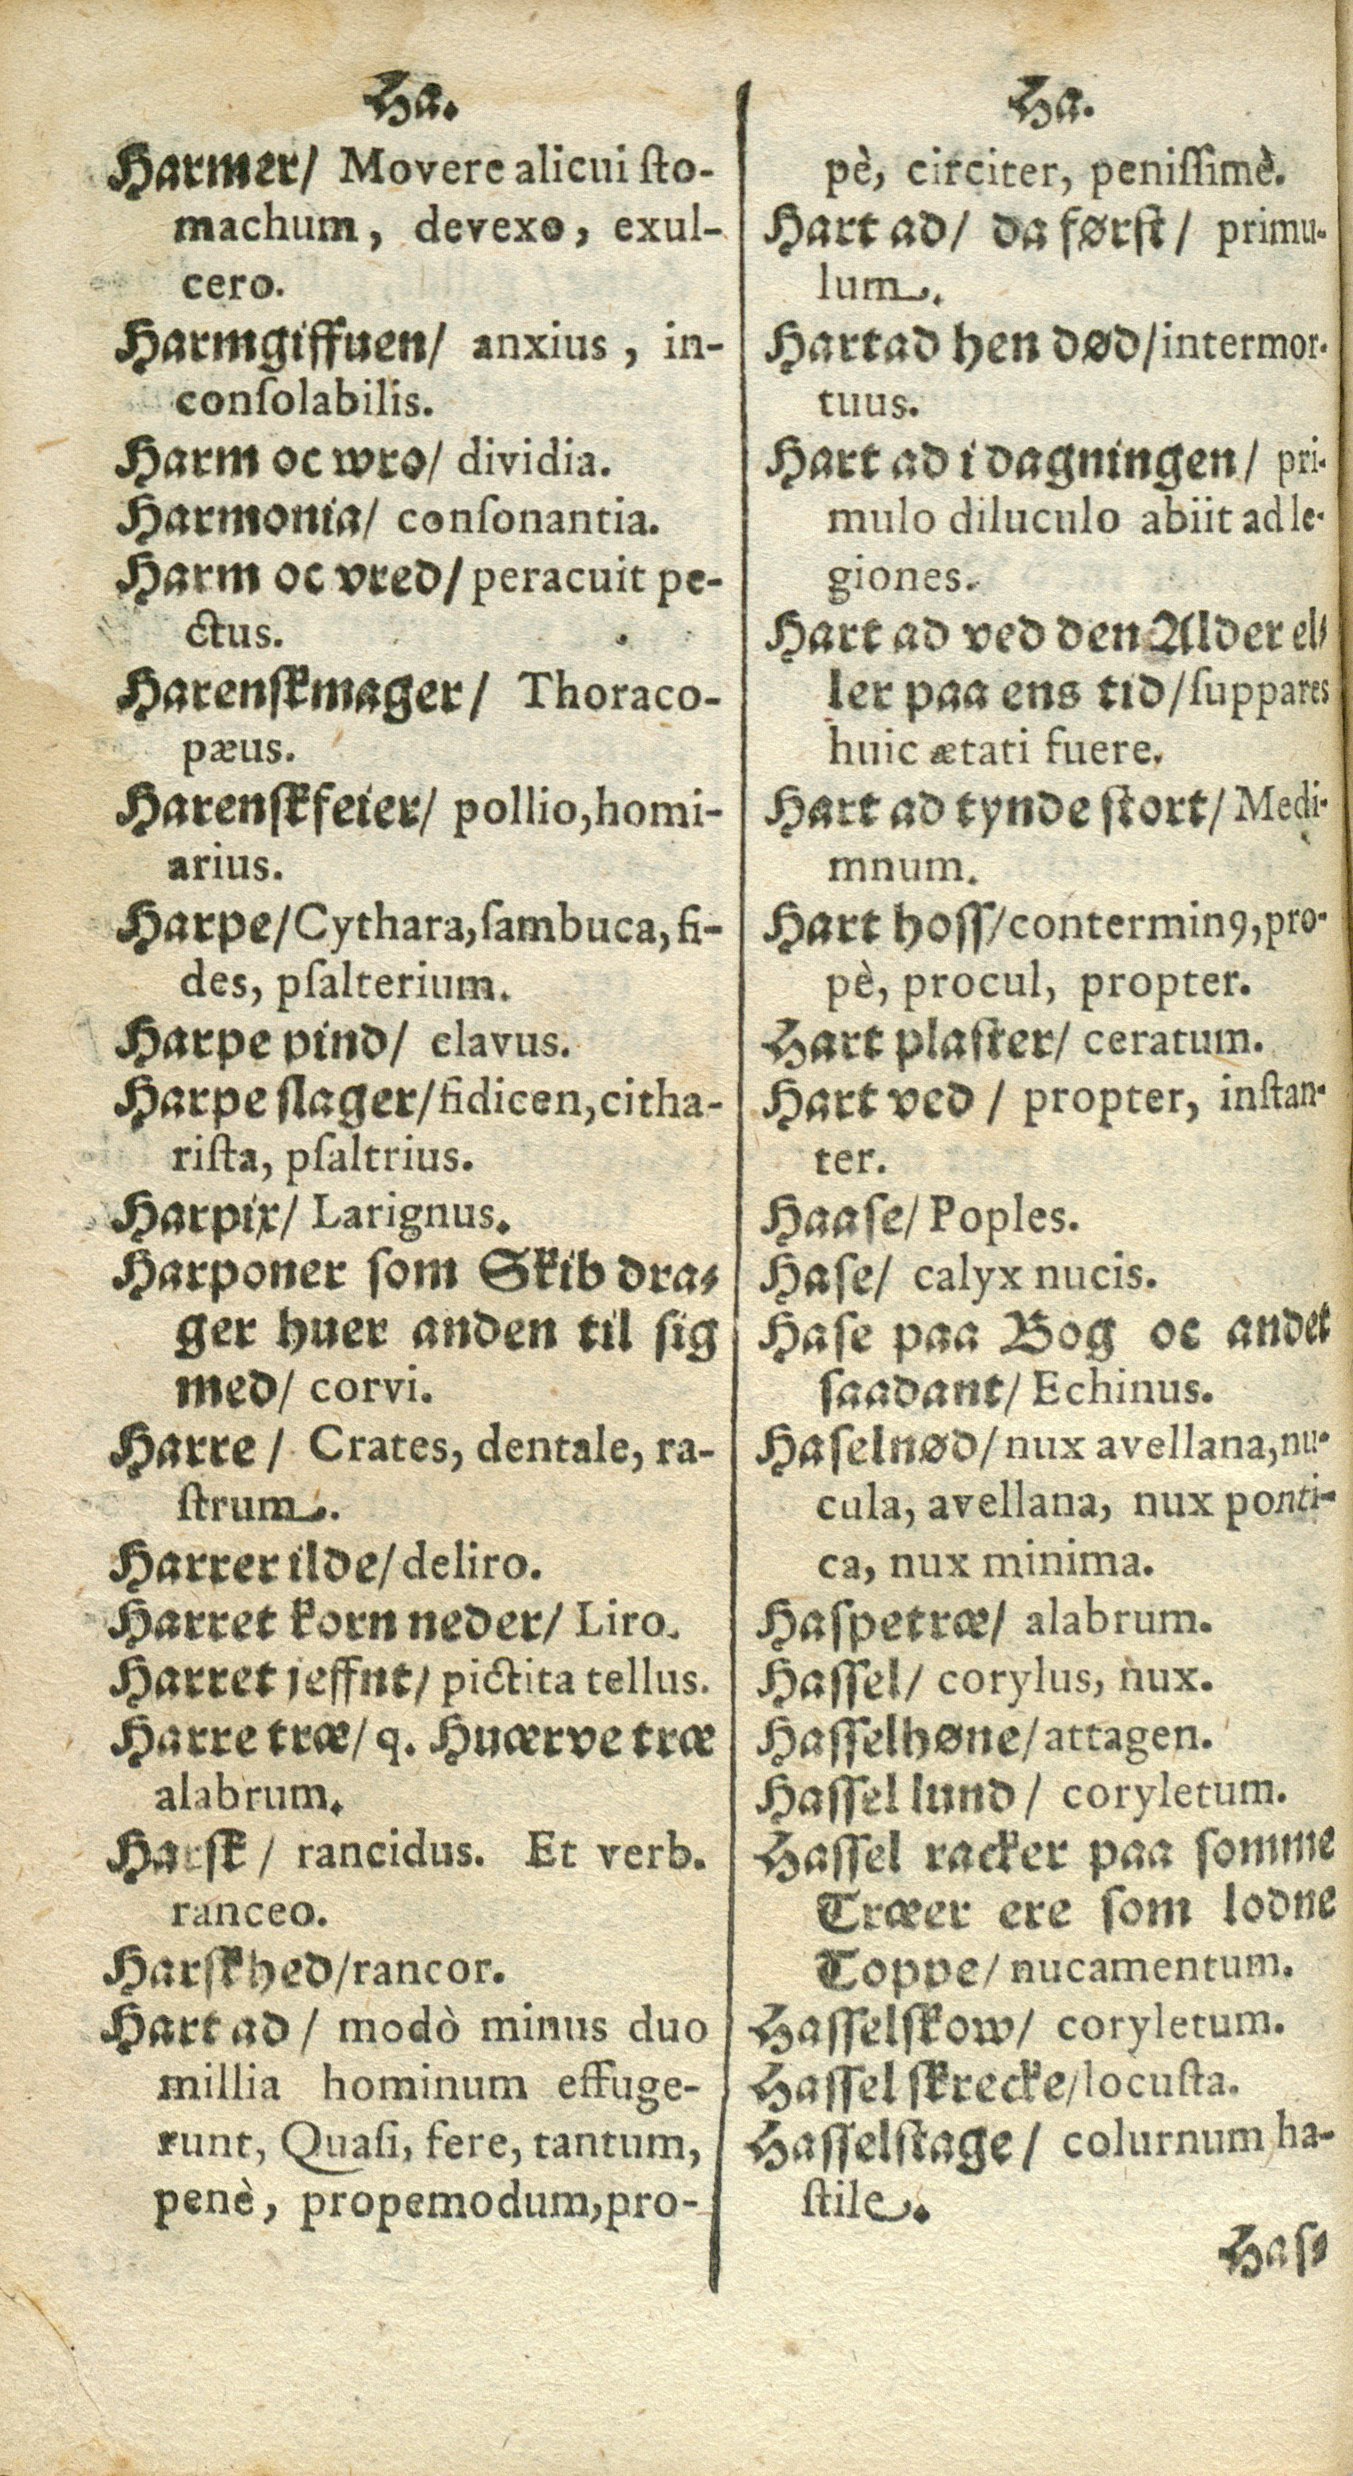 Ha.
Harmer/ Movere alicui ſto-
machum, devexo, exul-
cero.
Harmgiffuen/ anxius, in-
conſolabilis.
Harm oc wro/ dividia.
Harmonia/ conſonantia.
Harm oc vred/ peracuit pe-
ctus.
Harenſkmager/ Thoraco-
pæus.
Harenſkfeier/ pollio, homi-
arius.
Harpe/ Cythara, ſambuca, fi-
des, pſalterium.
Harpe pind/ clavus.
Harpe ſlager/ fidicen, citha-
riſta, pſaltrius.
Harpix/ Larignus.
Harponer ſom Skib dra-
ger huer anden til ſig
med/ corvi.
Harre/ Crates, dentale, ra-
ſtrum.
Harrer ilde/ deliro.
Harret korn neder/ Liro.
Harret jeffnt/ pictita tellus.
Harre træ/ q. Huærve træ
alabrum.
Harſk/ rancidus. Et verb.
ranceo.
Harſkhed/ rancor.
Hart ad/ modò minus duo
millia hominum effuge-
runt, Quaſi, fere, tantum,
penè, propemodum, pro-
Ha.
pè, circiter, peniſſimè.
Hart ad/ da førſt/ primu-
lum.
Hart ad hen død/ intermor-
tuus.
Hart ad i dagningen/ pri-
mulo diluculo abiit ad le-
giones.
Hart ad ved den Alder el-
ler paa ens tid/ ſuppares
huic ætati fuere.
Hart ad tynde ſtort/ Medi-
mnum.
Hart hoſſ/ conterminꝰ, pro-
pè, procul, propter.
Hart plaſter/ ceratum.
Hart ved/ propter, inſtan-
ter.
Haaſe/ Poples.
Haſe/ calyx nucis.
Haſe paa Bog oc andet
ſaadant/ Echinus.
Haſelnød/ nux avellana, nu-
cula, avellana, nux ponti-
ca, nux minima.
Haſpetræ/ alabrum.
Haſſel/ corylus, nux.
Haſſelhøne/ attagen.
Haſſel lund/ coryletum.
Haſſel racker paa ſomme
Træer ere ſom lodne
Toppe/ nucamentum.
Haſſelſkow/ coryletum.
Haſſel ſkrecke/ locuſta.
Haſſelſtage/ colurnum ha-
ſtile.
Haſ-